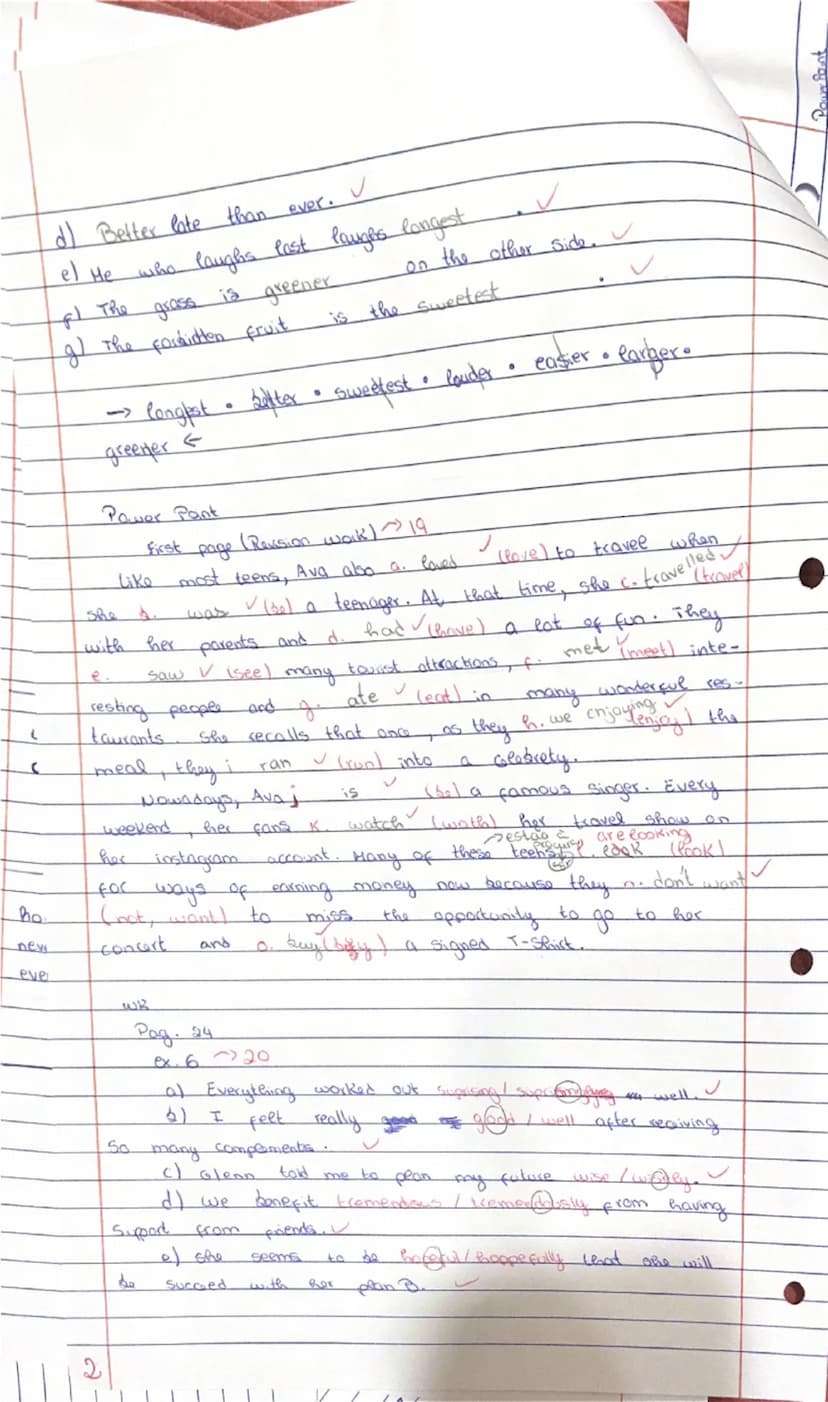 Power Point
d) Better late than ever. ✓
e) He who laughs last laughs longest . ✓
f) The grass is greener on the other side. ✓
g) The forbidten fruit is the sweetest . ✓
→ longest • better • sweetest • louder • easier • larger •
greener ←
Power Pont
First page (Revision work) → 19
Like most teens, Ava also a. loved ✓ (love) to travel when
she b. was ✓ (be) a teenager. At that time, she c. travelled ✓ (travel)
with her parents and d. had ✓ (have) a lot of fun. They
e. saw ✓ (see) many tourist attractions, f. met ✓ (meet) inte-
resting people and g. ate ✓ (eat) in many wonderful res-
taurants. She recalls that once, as they h. we enjoying ✓ (enjoy) the
meal, they i ran ✓ (run) into a celebrety.
Nowadays, Ava j is ✓ (be) a famous singer. Every
weekend, her fans k. watch ✓ (wath) her travel show on
her instagram account. Many of these teens l. look (look)
→ estão à are looking
for ways of earning money now because they n. don't want ✓
(not, want) to miss the opportunity to go to her
concert and o. buy (buy) a signed T-Shirt.
ho
new
eve
WB
Pag. 24
ex. 6 → 20
a) Everything worked out well. ✓
b) I felt really good / well after reciving
so many compements. ✓
c) Glenn told me to plan my future wise / wisely. ✓
d) We benefit tremendous / tremendously from having
support from friends. ✓
e) She seems to be hopeful / hoopefully that she will
be succeed with her plan B. ✓
2